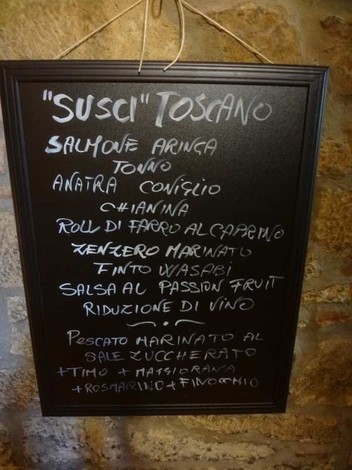 "SUSCI" TOSCANO
SALMONE ARINGA
TONNO
ANATRA CONIGLIO
CHIANINA
ROLL DI FARRO AL CAPRINO
ZENZERO MARINATO
FINTO WASABI
SALSA AL PASSION FRUIT
RIDUZIONE DI VINO
PESCATO MARINATO AL
SALE ZUCCHERATO
+TIMO + MAGGIORANA
+ROSMARINO + FINOCCHIO